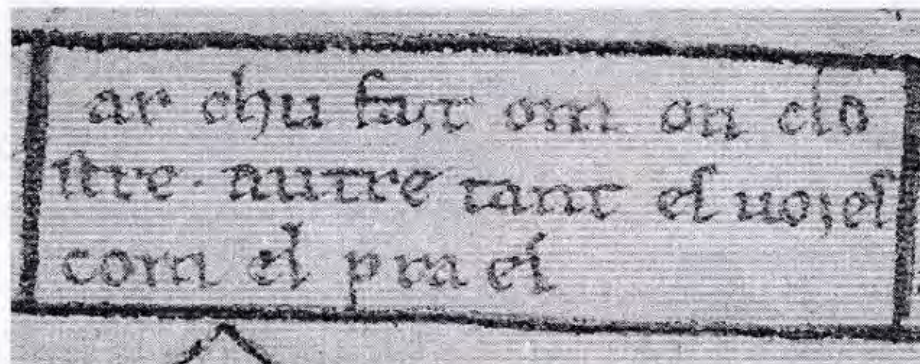 ar chu fait om on clo
istre · autre tant es uoies
com el pra es